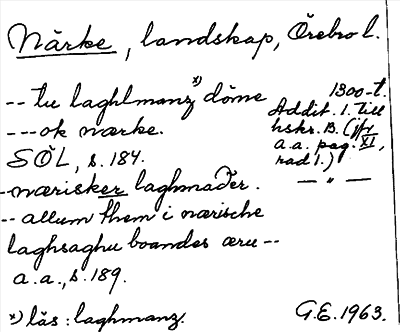 Närke, landskap, Örebro l.
-- tu laghlmanz x) döme
1300-t.
--- ok nærke.
Addit. 1. till
hskr. B. (jfr
SÖL, s. 184.
a.a. pag. XI,
rad 1.)
- nærisker laghmaðer.
— " —
-- allum them i nærische
laghsaghu boandes æru --
a.a., s. 189.
x) läs: laghmanz.
G.E. 1963.